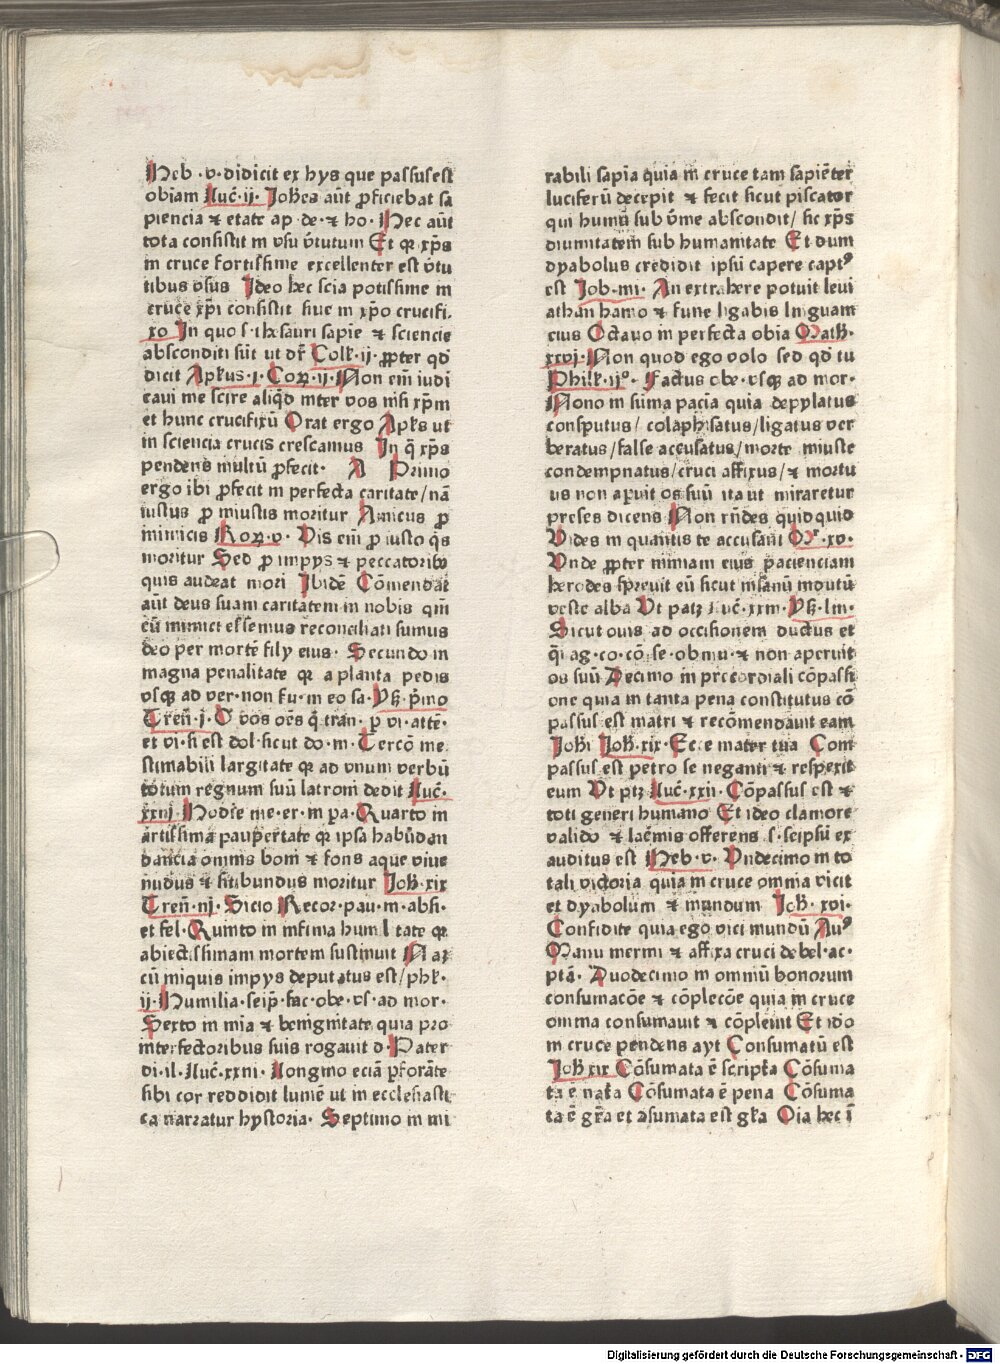 Heb ·v· didicit ex hys que passus est
obiam Luc̄·ij· Johēs aūt ꝓficiebat sa
piencia ⁊ etate ap·de·⁊ ho· Hec aūt
tota consistit in vsu v̄tutum Et qꝛ xp̄s
in cruce fortissime excellenter est v̄tu
tibus vsus Ideo hec scīa potissime in
cruce xp̄i consistit siue in xp̄o crucifi
xo In quo s·thesauri sapīe ⁊ sciencie
absconditi sūt ut dr̄ Coll̄·ij· ꝓpter qd̄
dicit Apl̄us·j·Coꝝ·ij· Non em̄ iudi
caui me scire aliqd̄ inter vos nisi xp̄m
et hunc crucifixū Orat ergo Apl̄s ut
in sciencia crucis crescamus In q̄ xp̄s
pendens multū ꝓfecit· A Primo
ergo ibi ꝓfecit in perfecta caritate/nā
iustus ꝓ iniustis moritur Amicus ꝓ
inimicis Roꝝ·v· Uis em̄ ꝓ iusto q̄s
moritur Sed ꝓ impys ⁊ peccatoribꝰ
quis audeat mori Ibidē Cōmendat
aūt deus suam caritatem in nobis qm̄
cū inimici essemus reconciliati sumus
deo per mortē fily eius· Secundo in
magna penalitate qꝛ a planta pedis
vsqꝫ ad ver·non fu·in eo sa· Ys̄·p̄mo
Tren̄·j· O vos oēs q̄ tran·p̱ vi·attē·
et vi·si est dol·sicut do·m· Tercō ine
stimabili largitate qꝛ ad vnum verbū
totum regnum suū latroni dedit Luc̄·
xxiij Hodie me·er·in pa· Quarto in
artissima paup̱ertate qꝛ ipsa habūdan
dancia omnis boni ⁊ fons aque viue
nudus ⁊ sitibundus moritur Joh̄ xix
Tren̄·iij· Sicio Recor·pau·m·absi·
et fel· Quinto in infima humilitate qꝛ
abiectissimam mortem sustinuit Naꝫ
cū iniquis impys deputatus est/phl̄·
ij· Humilia·seip̄·fac·obe·vs·ad mor·
Sexto in mīa ⁊ benignitate quia pro
interfectoribus suis rogauit d· Pater
di·il·Luc̄·xxiii· Longino eciā p̱forāte
sibi cor reddidit lumē ut in ecclesiasti
ca narratur hystoria· Septimo in mi
rabili sapīa quia in cruce tam sapiēter
luciferū decepit ⁊ fecit sicut piscator
qui hamū sub v̄me abscondit/ sic xp̄s
diuinitatem sub humanitate Et dum
dyabolus credidit ipsū capere captꝰ
est Job·iii· An extrahere potuit leui
athan hamo ⁊ fune ligabis linguam
eius Octauo in perfecta obīa Math̄·
xxvj· Non quod ego volo sed qd̄ tu
Phil̄·ijº· Factus obe·vsqꝫ ad mor·
Nono in sūma pacīa quia depylatus
consputus/ colaphisatus/ligatus ver
beratus/false accusatus/morte iniuste
condempnatus/cruci affixus/⁊ mortu
us non aꝑuit os suū ita ut miraretur
preses dicens Non rn̄des quidquid
Vides in quantis te accusant Mʳ·xv·
Vnde ꝓpter nimiam eius pacienciam
herodes sp̄reuit eū sicut insanū īdutū
veste alba Ut patꝫ Luc̄·xxiii· Ys̄·liii·
Sicut ouis ad occisionem ductus et
q̄i ag·co·cō·se·obmu·⁊ non aperuit
os suū Decimo in precordiali cōpassi
one quia in tanta pena constitutus cō
passus est matri ⁊ recōmendauit eam
Joh̄i Joh̄·xix· Ecce mater tua Com
passus est petro se neganti ⁊ respexit
eum Ut ptꝫ Luc̄·xxii· Cōpassus est ⁊
toti generi humano Et ideo clamore
valido ⁊ lac̄mis offerens ·s·seipsū ex
auditus est Heb·v· Undecimo in to
tali victoria quia in cruce omnia vicit
et dyabolum ⁊ mundum Joh̄·xvi·
Confidite quia ego vici mundū Auꝰ
Manu inermi ⁊ affixa cruci debel·ac·
ptā· Duodecimo in omniū bonorum
consumacōe ⁊ cōplecōe quia in cruce
omnia consumauit ⁊ cōpleuit Et idō
in cruce pendens ayt Consumatū est
Joh̄ xix Cōsumata ē scriptʳa Cōsuma
ta ē natʳa Cōsumata ē pena Cōsuma
ta ē gr̄a et ꝯsumata est gl̄a Oīa hec ī
Digitalisierung gefördert durch die Deutsche Forschungsgemeinschaft - DFG